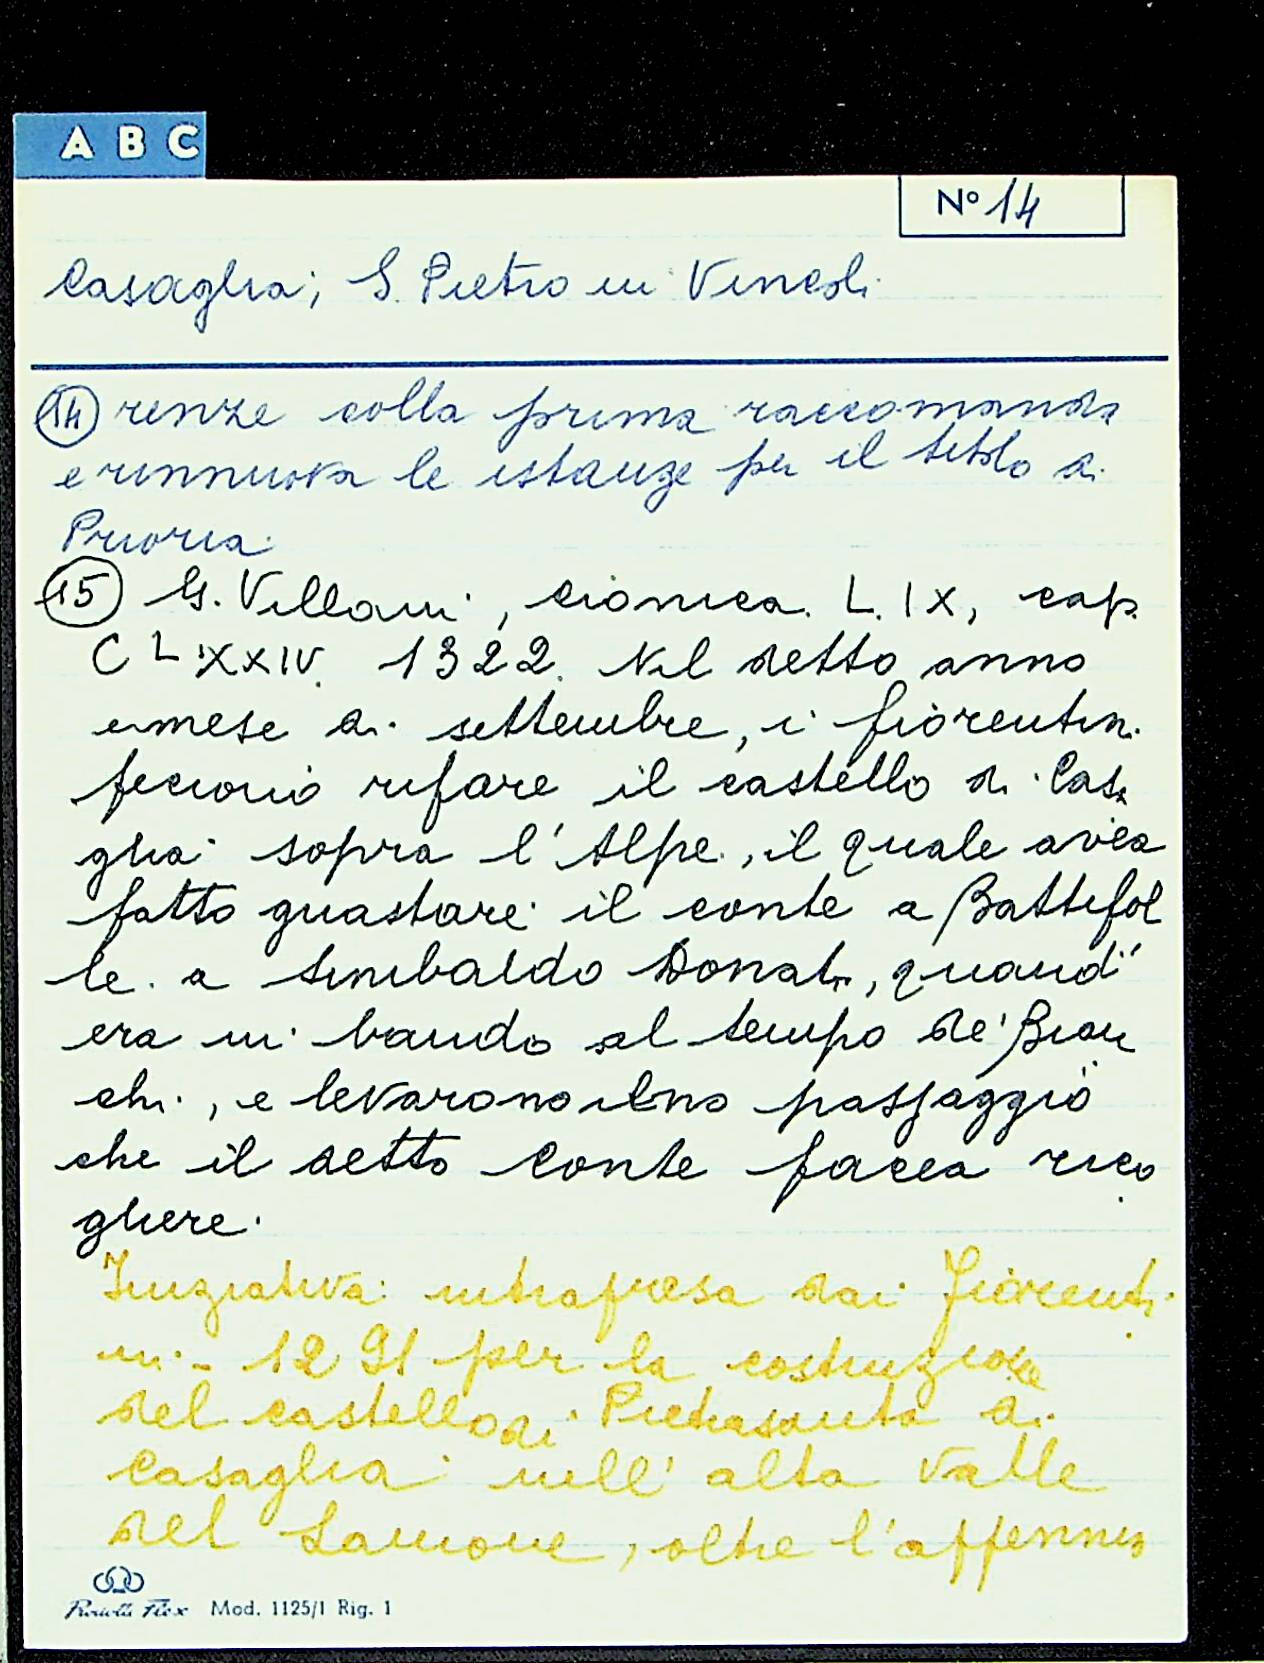 A B C
N° 14
Casaglia; S. Pietro in Vincoli
14 renze colla prima raccomanda
e rinnuova le istanze per il titolo di
Prioria.
15 G. Villani, cronica. L. IX, cap.
CLXXIV. 1322. Nel detto anno
e mese di settembre, i fiorentini
feciono rifare il castello di Casa
glia sopra l'Alpe, il quale avea
fatto guastare il conte a Battifol
le a Sinibaldo Donati, quand'
era in bando al tempo de' Bian
chi, e levarono passaggio
che il detto Conte facea rico
gliere.
Iniziativa intrapresa dai Fiorenti
ni - 1291 per la costruzione
del castello di Pietrasanta di
Casaglia nell'alta valle
del Lamone, oltre l'appennino
Flex Mod. 1125/1 Rig. 1